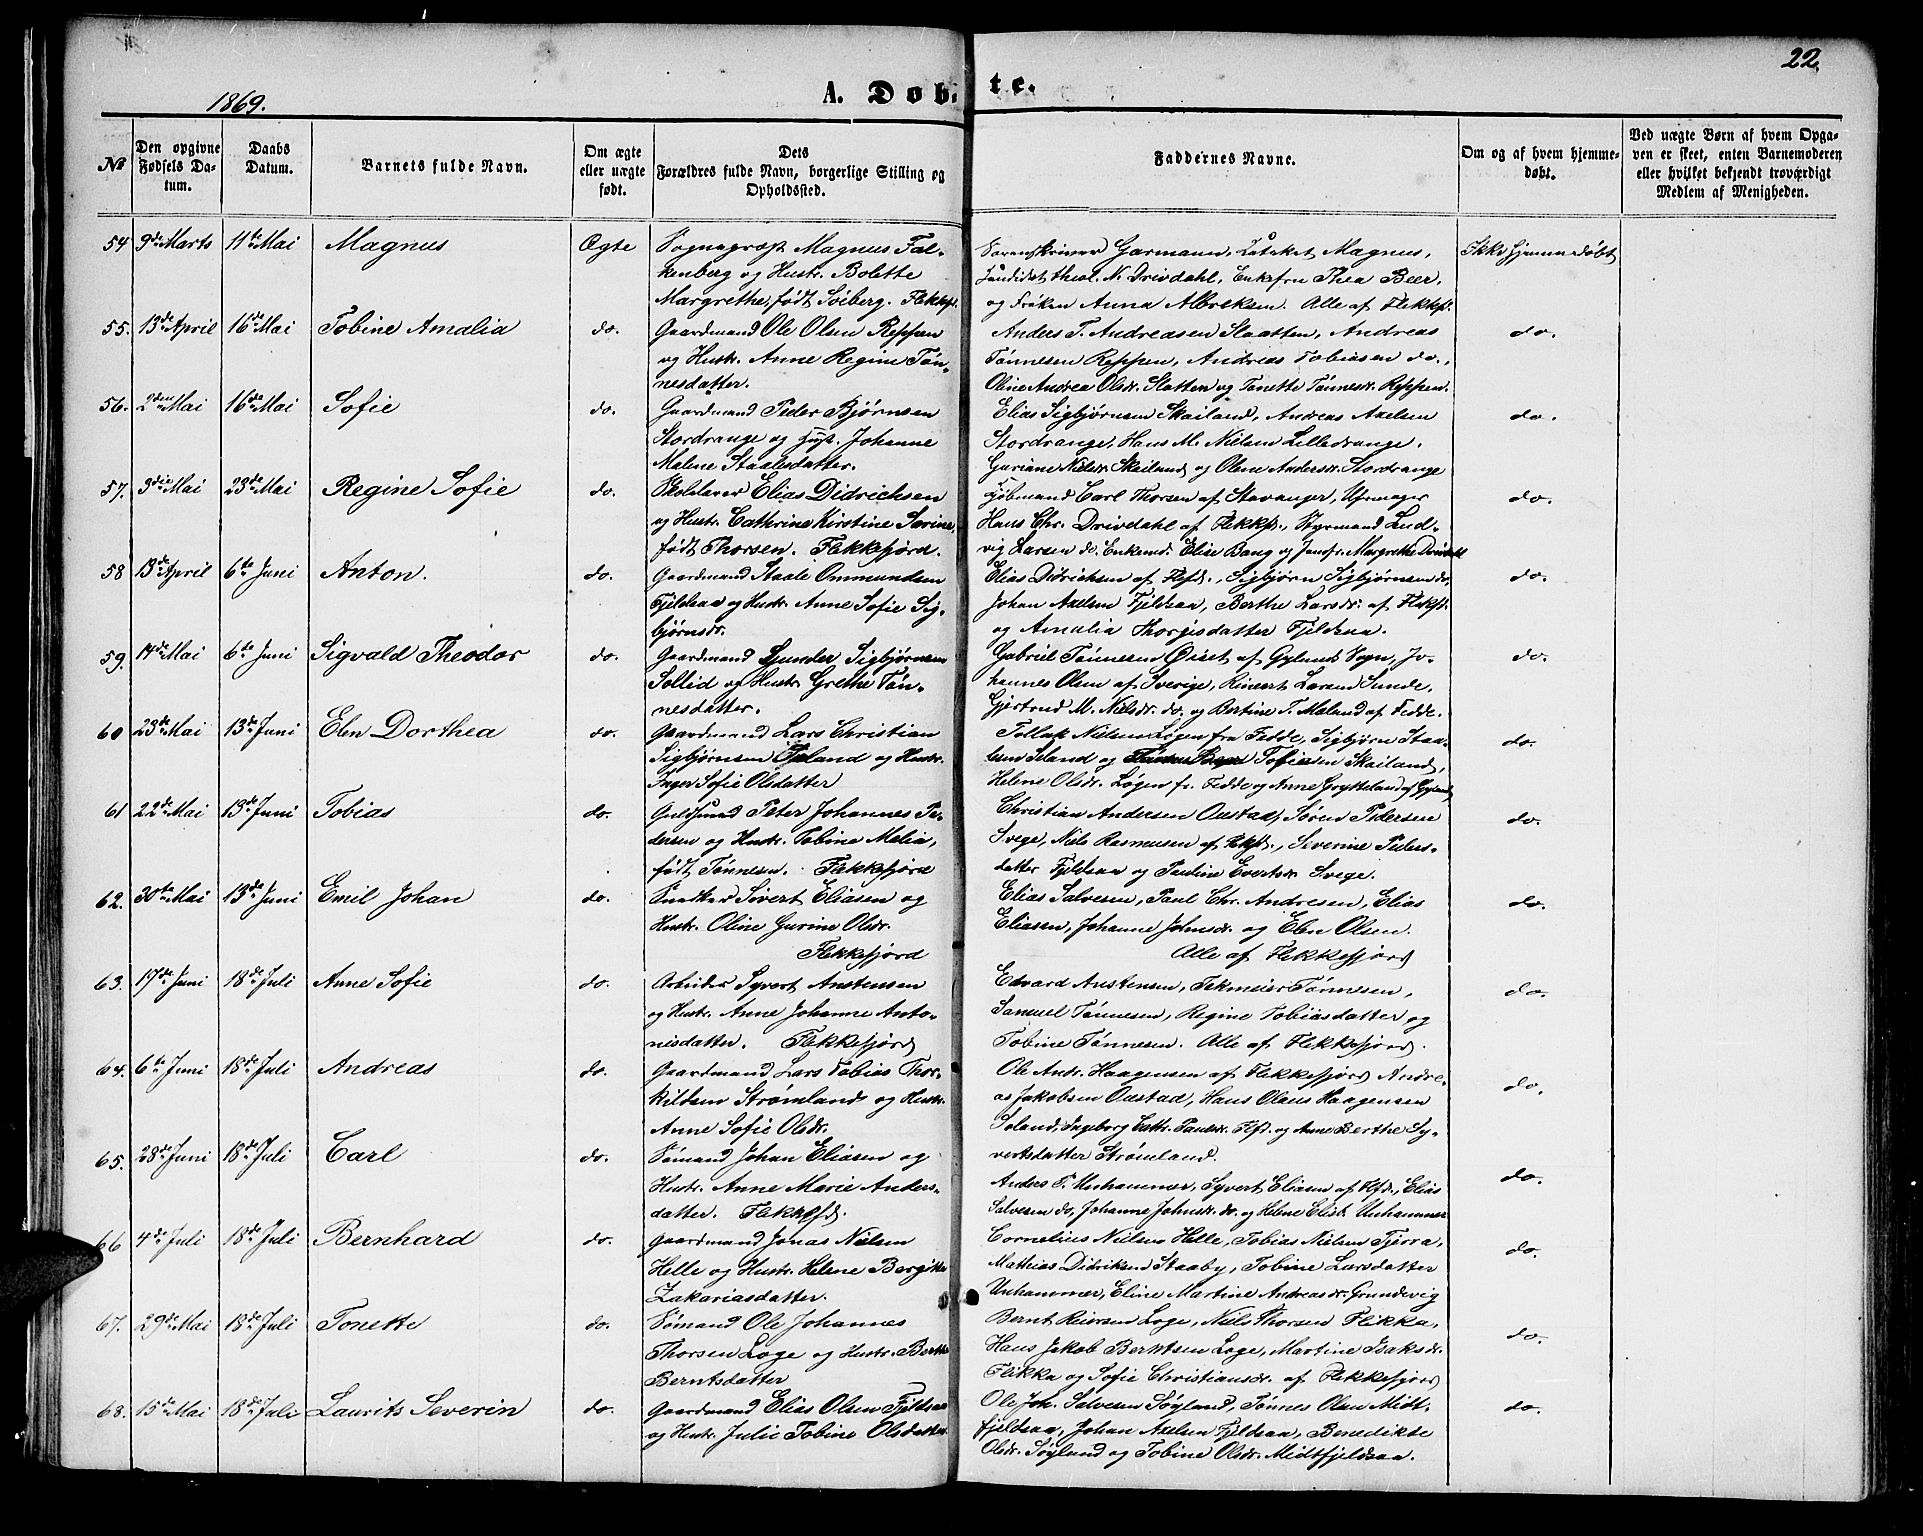 22
1869.
A. Døbte.
No
Den opgivne Fødsels Datum.
Daabs Datum.
Barnets fulde Navn.
Om ægte eller uægte født.
Dets Forældres fulde Navn, borgerlige Stilling og Opholdssted.
Faddernes Navne.
Om og af hvem hjemmedøbt.
Ved uægte Børn af hvem Opgaven er skeet, enten Barnemoderen eller hvilket bekjendt troværdigt Medlem af Menigheden.
54 9de Marts 11te Mai Magnus Ægte
Sogneprest Magnus Fal-
kenberg og Hustr. Bolette
Margrethe, født Soiberg. Flekkf.
Sorenskriver Garmann, Magnus,
Candidat theol. N. Drivdahl, Enkefru Thea Beer,
og Frøken Anna Albreksen. Alle af Flekkf.
Ikke hjemmedøbt
55. 13de April 16de Mai Tobine Amalia do.
Gaardmand Ole Olsen Reppen
og Hustr. Anne Regine Tøn-
nesdatter.
Anders T. Andreasen Slaatten, Andreas
Tønnesen Reppen, Andreas Tobiasen do.,
Oline Andrea Olsdr. Slatten og Tonette Tønnesdr. Reppen.
do.
56. 2den Mai 16de Mai Sofie do.
Gaardmand Peder Bjørnsen
Stordrange og Hust. Johanne
Malene Staalesdatter.
Elias Sigbjørnsen Skailand, Andreas Axelsen
Stordrange, Hans M. Nielsen Lilledrange,
Guriane Nielsdr. Skailand og Olene Andersdr. Stordrange
do.
57. 3die Mai 23de Mai Regine Sofie do.
Skolelærer Elias Didrichsen
og Hustr. Cathrine Kirstine Serine,
født Thorsen. Flekkefjord.
Kjøbmand Carl Thorsen af Stavanger, Uhrmager
Hans Chr. Drivdahl af Flekkf., Styrmand Lud-
vig Larsen do. Enkemd. Elise Bang og Jomfr. Margrethe Drivdahl
do.
58 13de April 6te Juni Anton. do.
Gaardmand Staale Ommundsen
Fjeldsaa og Hustr. Anne Sofie Sig-
bjørnsdr.
Elias Didrichsen af Flkfd., Sigbjørn Sigbjørnsen do.
Johan Axelsen Fjeldsaa, Berthe Larsdr. af Flekkf.
og Amalia Thorgisdatter Fjeldsaa.
do.
59. 14de Mai 6te Juni Sigvald Theodor do.
Gaardmand Sjunder Sigbjørnsen
Sollid og Hustr. Grethe Tøn-
nesdatter.
Gabriel Tønnesen Øiset af Gylands Sogn, Jo-
hannes Olsen af Sverige, Rineert Larsen Sunde,
Gjertrud M. Nielsdr. do. og Bertine T. Meland af Fedde.
do.
60 23de Mai 13de Juni Elen Dorthea do.
Gaardmand Lars Christian
Sigbjørnsen Øiland og Hustr.
Inger Sofie Olsdatter
Tollak Nielsen Løgen fra Fedde, Sigbjørn Staa-
lesen Iland og Tofiesen Skailand,
Helene Olsdr. Løgen fr. Fedde og Anne Grytteland af Gyland
do.
61 22de Mai 13de Juni Tobias do.
Guldsmed Peter Johannes Pe-
dersen og Hustr. Tobine Malia,
født Tønnesen. Flekkefjord
Christian Andersen Oustad, Søren Pedersen
Svege, Niels Rasmussen af Flkfd., Severine Peders-
datter Fjeldsaa og Pauline Evertsdr. Svege.
do.
62. 30te Mai 13de Juni Emil Johan do.
Snedker Sivert Eliasen og
Hustr. Oline Gurine Olsdr.
Flekkefjord
Elias Salvesen, Paul Chr. Andresen, Elias
Eliasen, Johanne Johnsdr. og Elen Olsen.
Alle af Flekkefjord
do.
63. 17de Juni 18de Juli Anne Sofie do.
Arbeider Syvert Anstensen
og Hustr. Anne Johanne Anto-
nisdatter. Flekkefjord
Edvard Austensen, Tekmeier Tønnesen,
Samuel Tønnesen, Regine Tobiasdatter og
Tobine Tønnesen. Alle af Flekkefjord.
do.
64. 6te Juni 18de Juli Andreas do.
Gaardmand Lars Tobias Thor-
kildsen Strømland og Hustr.
Anne Sofie Olsdr.
Ole Andr. Haagensen af Flekkefjord Andre-
as Jakobsen Oustad, Hans Olaus Haagensen
Soland, Ingeborg Cathr. Paulsdr. Flkfd. og Anne Berthe Sy-
vertsdatter Strømland.
do.
65. 28de Juni 18de Juli Carl do.
Sømand Johan Eliasen og
Hustr. Anne Marie Anders-
datter. Flekkefd.
Anders T. Unhammer, Syvert Eliasen af Flkfd., Elias
Salvesen do, Johanne Johnsdr. do. og Helene Elisb. Unhammer
do.
66 4de Juli 18de Juli Bernhard do.
Gaardmand Jonas Nielsen
Helle og Hustr. Helene Bergitte
Zakariasdatter.
Cornelius Nielsen Helle, Tobias Nielsen Tjorra,
Mathias Didriksen Staaby, Tobine Larsdatter
Unhammer, Eline Martine Andreasdr. Grundevig
do.
67. 29de Mai 18de Juli Tonette do.
Sømand Ole Johannes
Thorsen Loge og Hustr. Berthe
Berntsdatter
Bernt Reiersen Loge, Niels Thorsen Flikka,
Hans Jakob Berntsen Loge, Martine Isaksdr.
Flikka og Sofie Christiansdr. af Flekkefjord
do.
68. 15de Mai 18de Juli Laurits Severin do.
Gaardmand Elias Olsen Fjeldsaa
og Hustr. Julie Tobine Olsdatter.
Ole Joh. Salvesen Søyland, Tønnes Olsen Midt-
fjeldsaa, Johan Axelsen Fjeldsaa, Benedikte
Olsdr. Søyland og Tobine Olsdr. Midtfjeldsaa.
do.